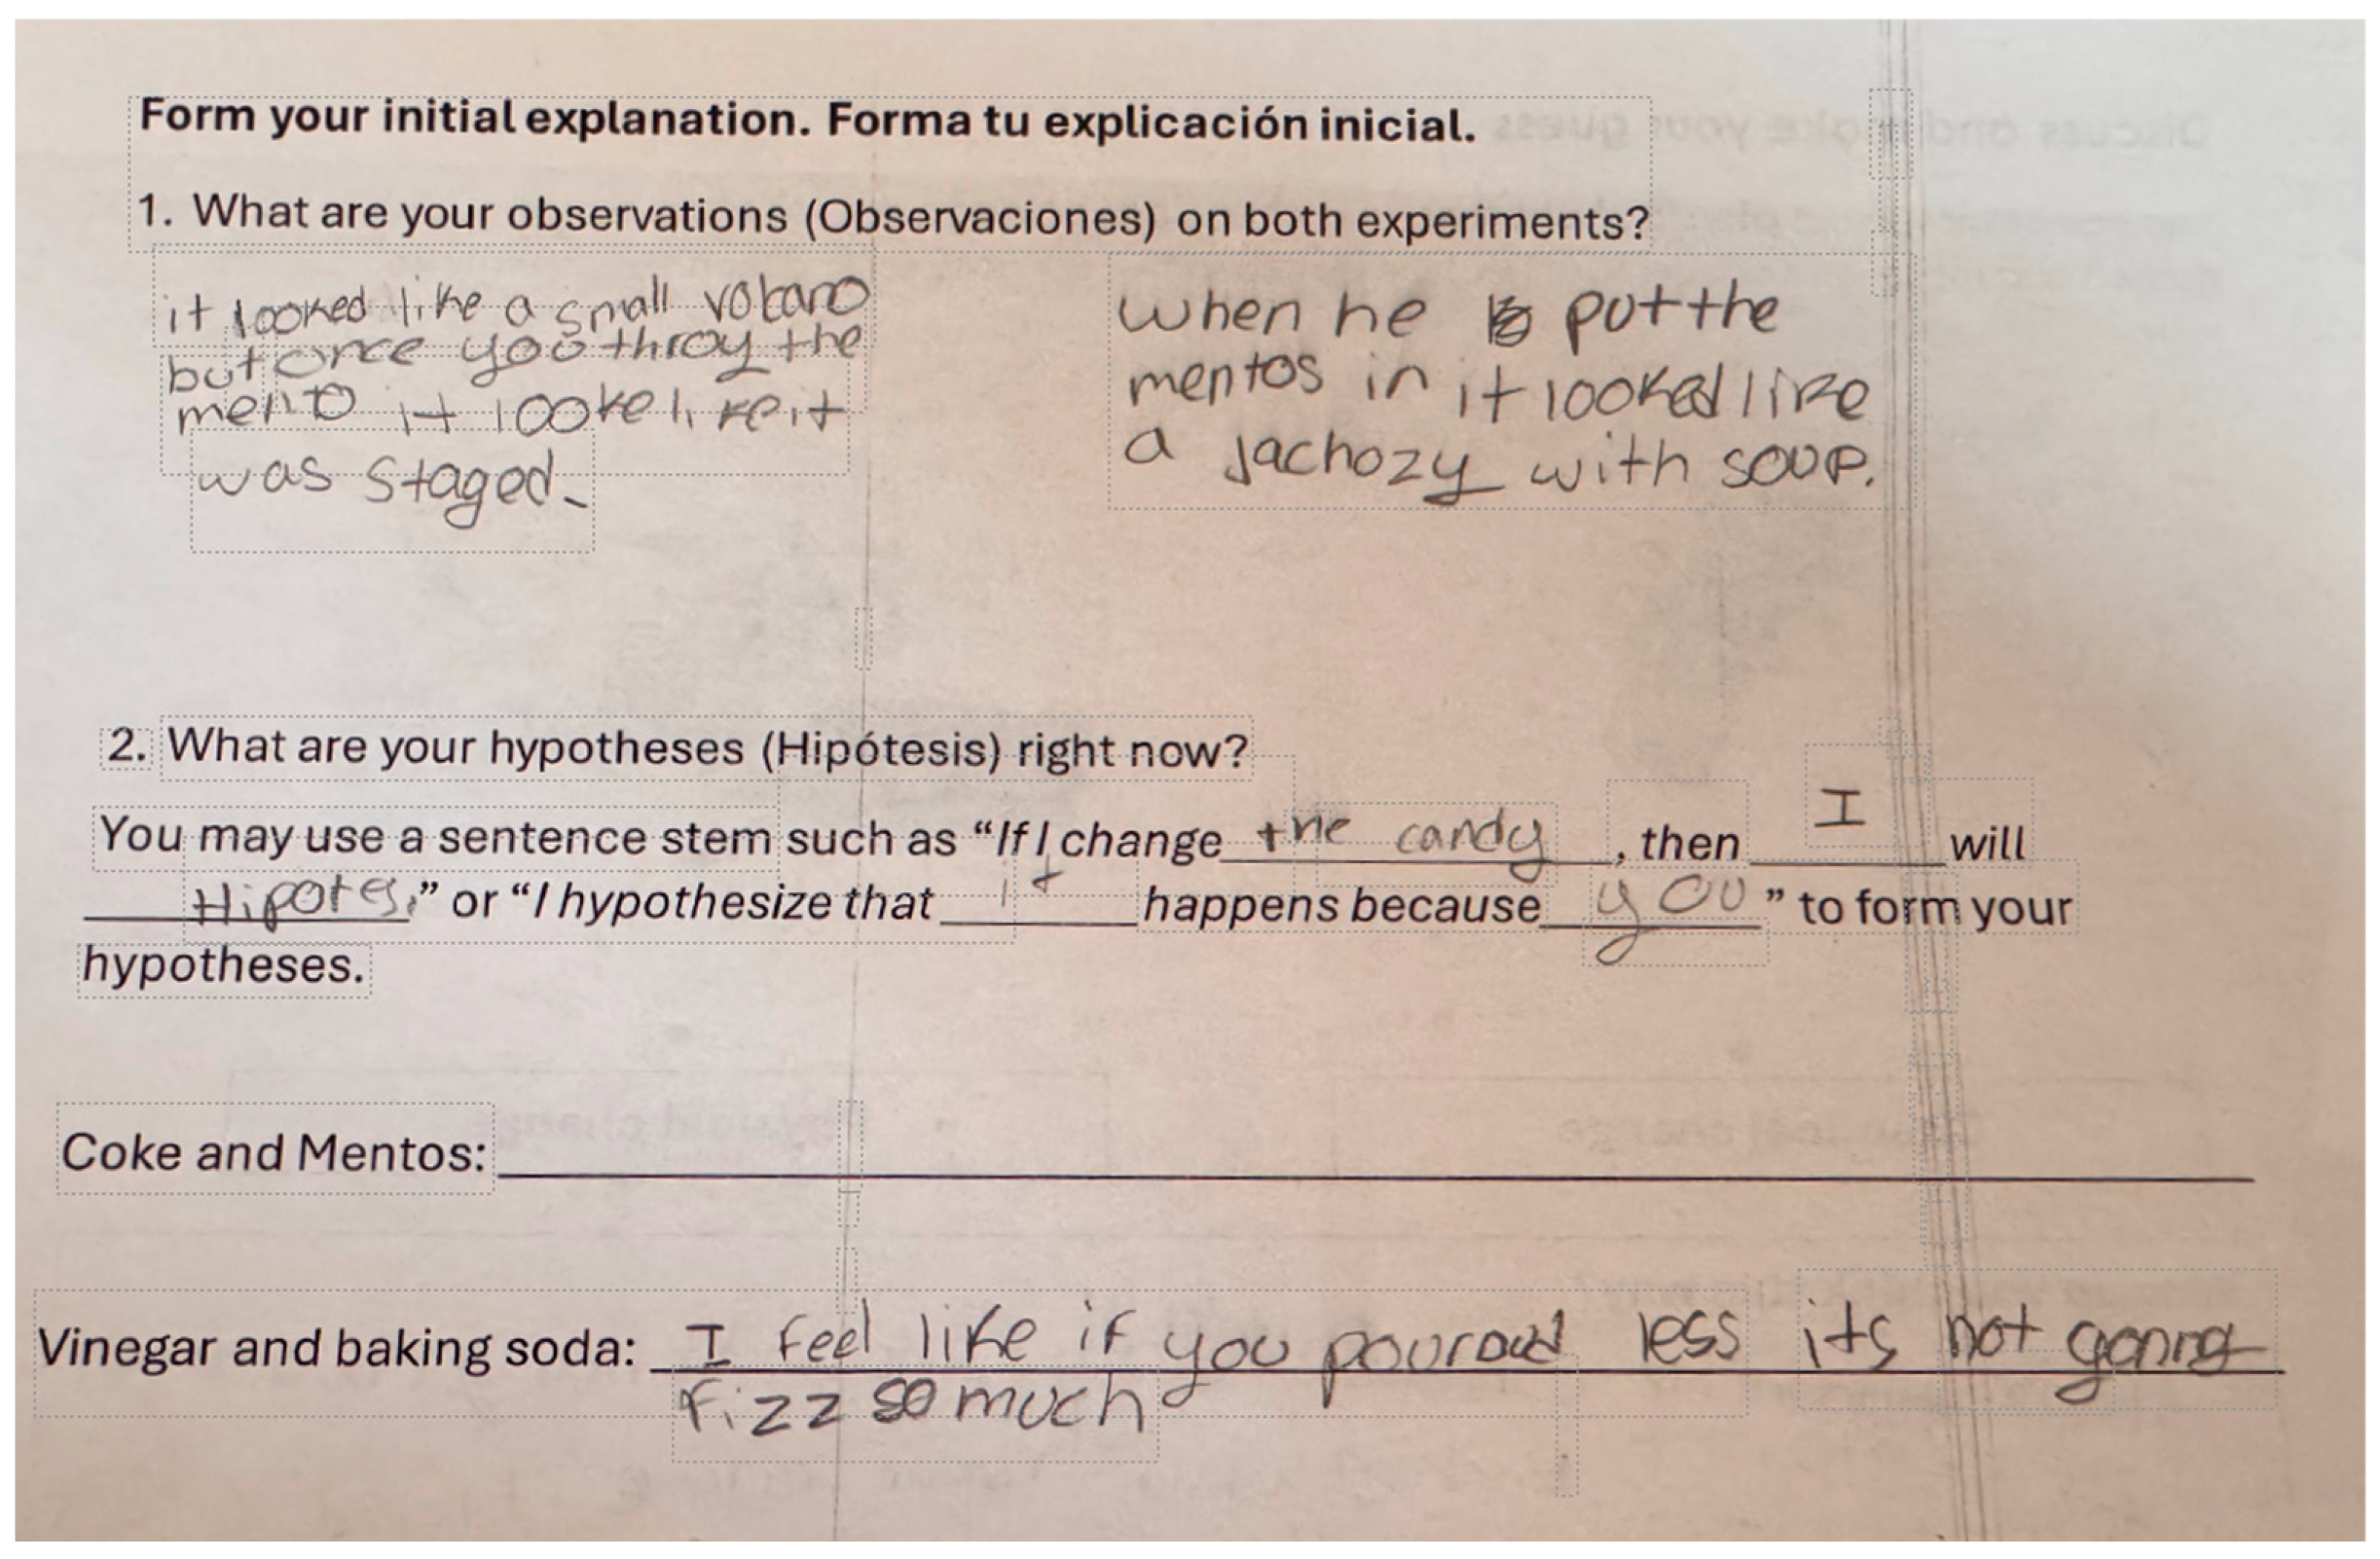 Form your initial explanation. Forma tu explicación inicial.
1. What are your observations (Observaciones) on both experiments?
it looked like a small volcano
but once you throy the
mento it looke like it
was staged.
when he put the
mentos in it looked like
a jachozy with soup.
2. What are your hypotheses (Hipótesis) right now?
You may use a sentence stem such as “If I change the candy, then I will
Hipotes,” or “I hypothesize that it happens because you” to form your
hypotheses.
Coke and Mentos:
Vinegar and baking soda: I feel like if you pour less its not going
fizz so much